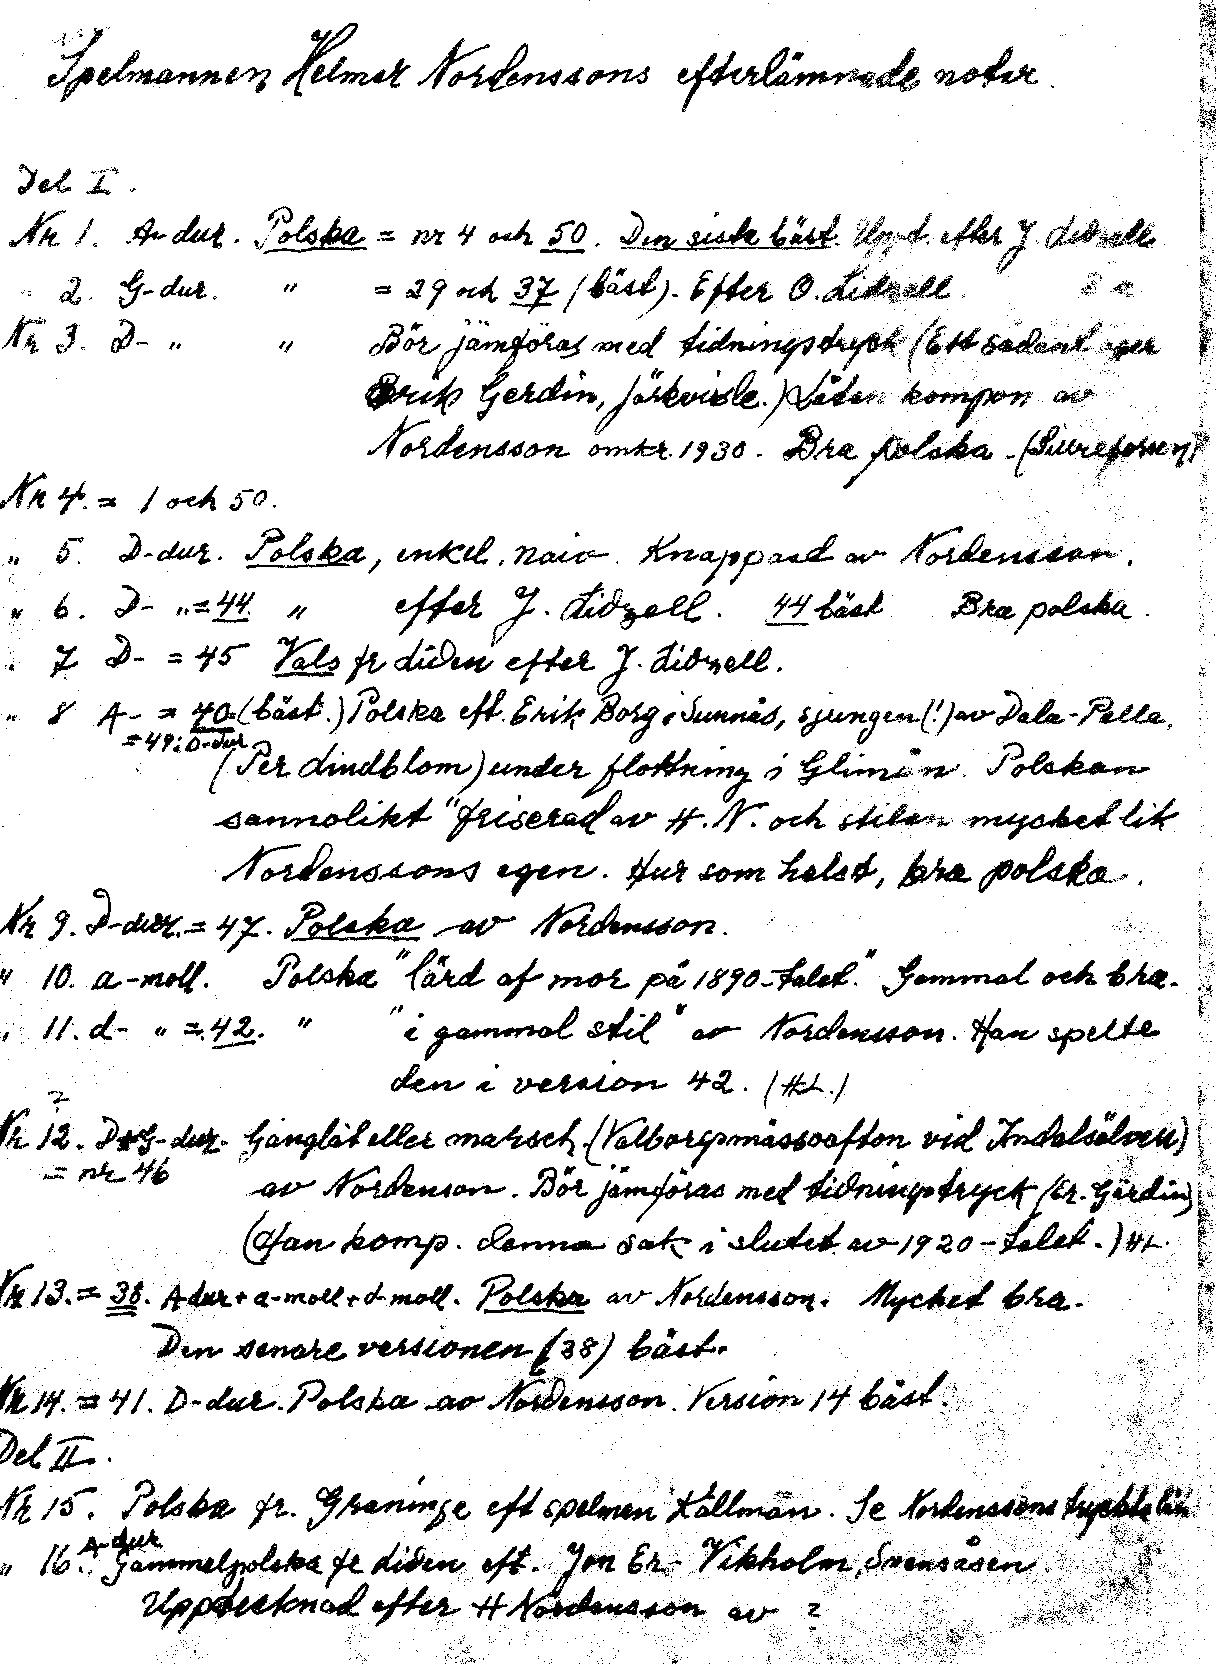 Spelmannen Helmer Nordenssons efterlämnade noter.
Del I.
Nr 1. A-dur. Polska = nr 4 och 50. Den siste bäst. Uppt. efter J Lidzell
2. G-dur. " = 29 och 37 (bäst). Efter O. Lidzell.
Nr 3. D- " " Bör jämföras med tidningstryck (Ett sådant äger
Erik Gerdin, Järkvisle.) Låten kompon av
Nordensson omkr 1930. Bra polska - (Sillreforsen)
Nr 4. = 1 och 50.
" 5. D-dur. Polska, enkel, naiv. Knappast av Nordensson.
" 6. D- " = 44. " efter J. Lidzell. 44 bäst Bra polska.
" 7 D- = 45 Vals fr Liden efter J. Lidzell.
" 8 A- = 40 (bäst.) Polska eft. Erik Borg i Sunnås, sjungen (!) av Dala-Pella.
= 49: D-dur
(Per Lindblom) under flottning i Gliman. Polskan
sannolikt "friserad av H. N. och stilen mycket lik
Nordenssons egen. Hur som helst, bra polska.
Nr 9. D-dur. = 47. Polska av Nordensson.
" 10. a-moll. Polska "lärd af mor på 1890-talet." Gammal och bra.
" 11. d- " = 42. " "i gammal stil" av Nordensson. Han spelte
den i version 42. (HL.)
?
Nr 12. D+G-dur. Gånglåt eller marsch, (Valborgsmässoafton vid Indalsälven)
= nr 46
av Nordenson. Bör jämföras med tidningstryck (Er. Gärdin)
(Han komp. denna sak i slutet av 1920-talet.) HL.
Nr 13. = 38. A dur + a-moll + d-moll. Polska av Nordensson. Mycket bra.
Den senare versionen (38) bäst.
Nr 14. = 41. D-dur. Polska av Nordensson. Version 14 bäst.
Del II.
Nr 15. Polska fr. Graninge eft spelmen Källman. Se Nordenssons tryckta
A-dur
" 16. Gammelpolska fr Liden eft. Jon Er- Vikholm, Svensåsen
Upptecknad efter H Nordensson av ?